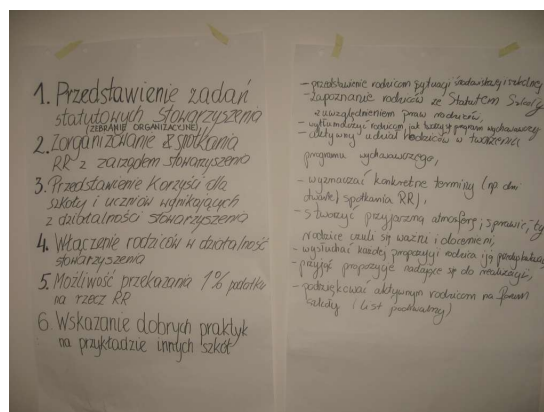 1. Przedstawienie zadań
statutowych stowarzyszenia
(ZEBRANIE ORGANIZACYJNE)
2. Zorganizowanie spotkania
RR z zarządem stowarzyszenia
3. Przedstawienie korzyści dla
szkoły i uczniów wynikających
z działalności stowarzyszenia
4. Włączenie rodziców w działalność
stowarzyszenia
5. Możliwość przekazania 1% podatku
na rzecz RR
6. Wskazanie dobrych praktyk
na przykładzie innych szkół
- przedstawienie rodzicom sytuacji i szkolnej
- zapoznanie rodziców ze Statutem Szkoły
z uwzględnieniem praw rodziców,
- wytłumaczyć rodzicom, jak program wychowawczy
- aktywny udział rodziców w tworzeniu
programu wychowawczego,
- wyznaczać konkretne terminy (np dni
otwarte) spotkania RR),
- stworzyć przyjazną atmosferę, sprawić, by
rodzice czuli się ważni i docenieni,
- wysłuchać każdej propozycji rodzica i ją
- przyjąć propozycje nadające się do realizacji,
- podziękować aktywnym rodzicom na forum
szkoły (list pochwalny)